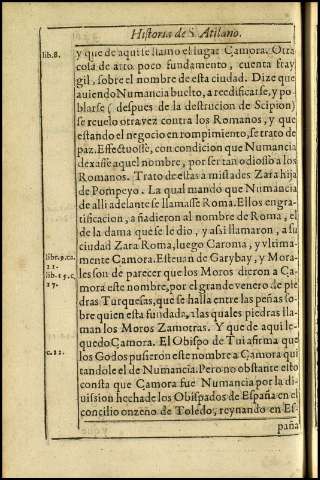 Historia de S. Atilano.
lib.8.
y que de aqui se llamo el lugar Çamora. Otra
cosa de atto poco fundamento, cuenta fray
gil, sobre el nombre de esta ciudad. Dize que
auiendo Numancia buelto, a reedificarse, y po
blarse ( despues de la destrucion de Scipion)
se reuelo otra vez contra los Romanos, y que
estando el negocio en rompimiento, se trato de
paz. Effectuosse, con condicion que Numancia
dexasse aquel nombre, por ser tan odiosso a los
Romanos. Trato de estas amistades Zara hija
de Pompeyo. La qual mando que Numancia
de alli adelante se llamasse Roma. Ellos en gra-
tificacion, añadieron al nombre de Roma, el
de la dama que se le dio, y assi llamaron, a su
ciudad Zara Roma, luego Caroma, y vltima-
mente Çamora. Esteuan de Garybay, y Mora-
les son de parecer que los Moros dieron a Ça-
mora este nombre, por el grande venero de pie
dras Turquesas, que se halla entre las peñas so-
bre quien esta fundada, alas quales piedras lla-
man los Moros Zamotras. Y que de aqui le-
quedo Çamora. El Obispo de Tui afirma que
los Godos pusieron este nombre a Çamora qui
tandole el de Numancia. Pero no obstante esto
consta que Çamora fue Numancia por la di-
uission hecha de los Obispados de España en el
concilio onzeno de Toledo, reynando en Es-
paña
libr.9.ca.
11.
lib.15.c.
17.
c.12.